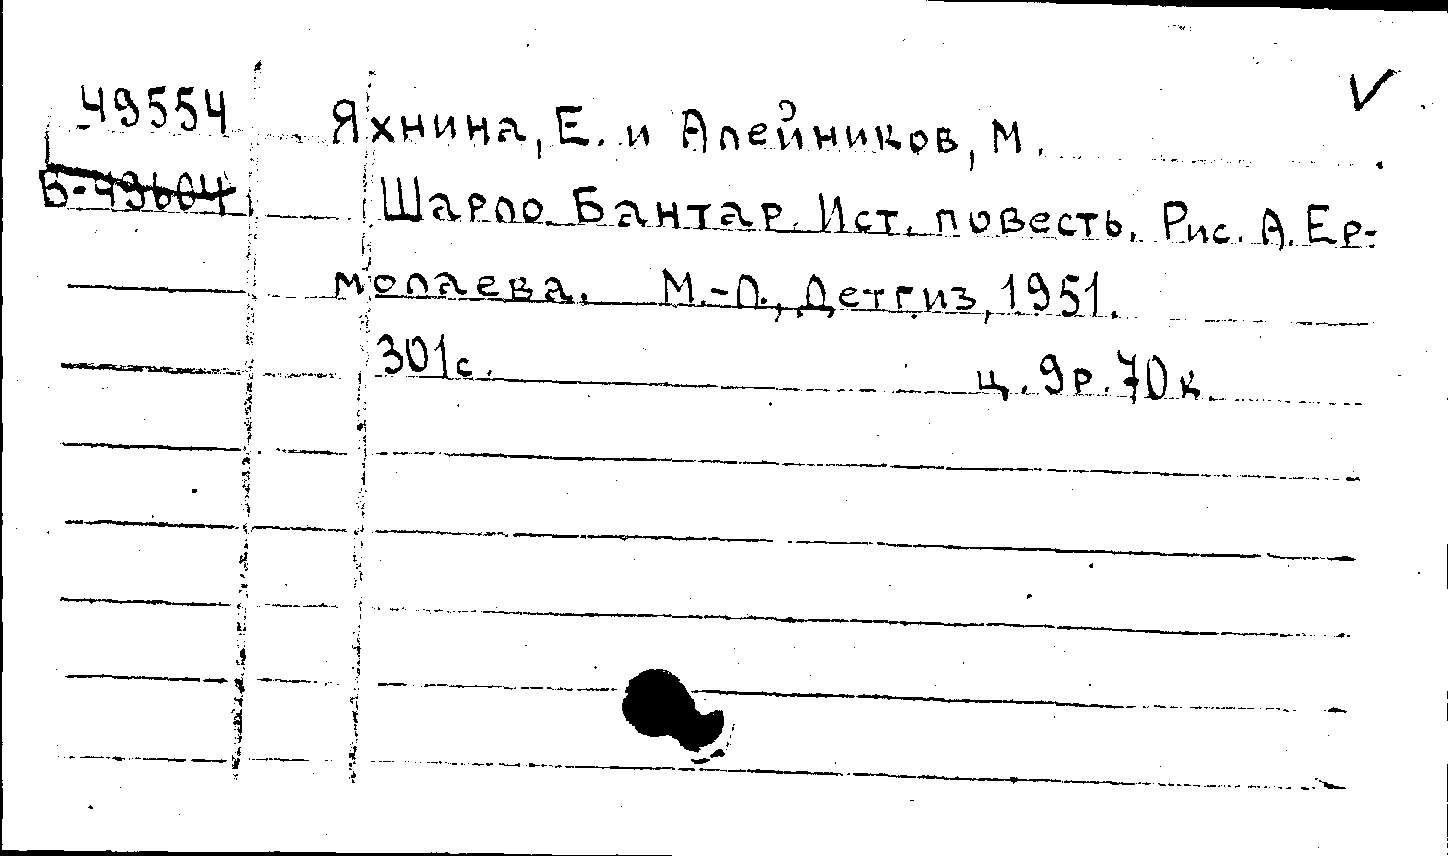 49554
Яхнина, Е. и Алейников, М.
Б-49604
Шарло Бантар. Ист. повесть. Рис. А. Ер-
молаева. М.-Л., Детгиз, 1951.
301с. ц. 9р. 70к.